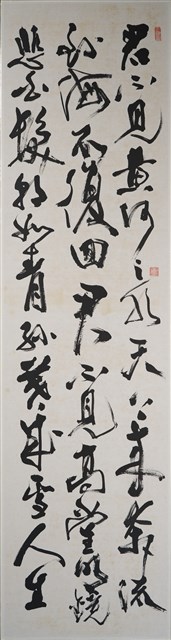 君不見黃河之水天上來奔流
到海不復回君不見高堂明鏡
悲白髮朝如青絲暮成雪人生